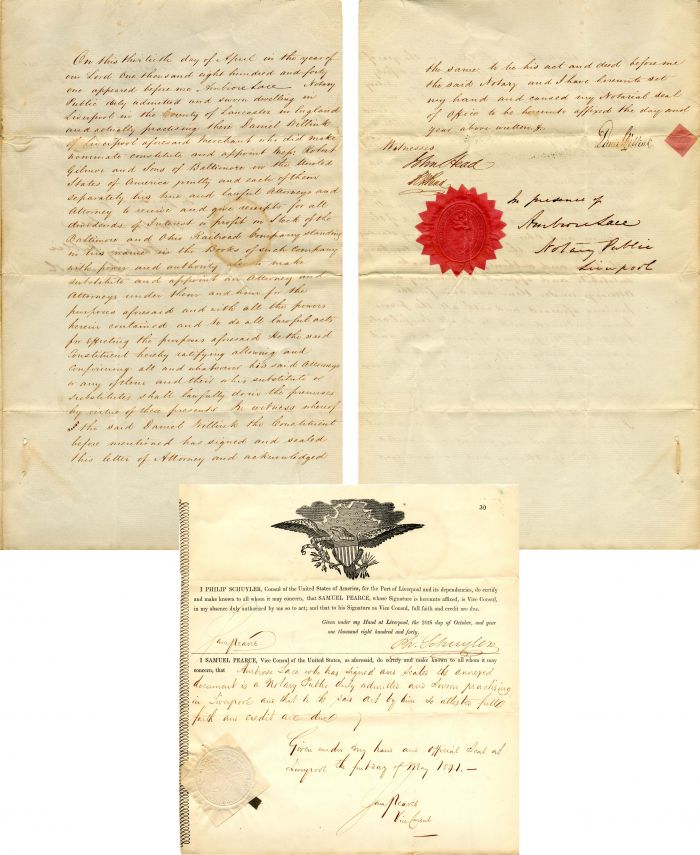 On this thirtieth day of April in the year of
our Lord One thousand eight hundred and forty
one appeared before me Ambrose Lace Notary
Public duly admitted and sworn dwelling in
Liverpool in the County of Lancaster in England
and actually practising there Daniel Willink
of Liverpool aforesaid Merchant who did make
nominate constitute and appoint Messrs Robert
Gilmor and Sons of Baltimore in the United
States of America jointly and each of them
separately his true and lawful Attorneys and
Attorney to receive and give receipts for all
dividends of Interest or profit on Stock of the
Baltimore and Ohio Railroad Company standing
in his name in the Books of such Company
with power and authority to make
substitute and appoint an Attorney and
Attorneys under them and him for the
purposes aforesaid and with all the powers
herein contained and to do all lawful acts
for effecting the purposes aforesaid the said
Constituent hereby ratifying allowing and
confirming all and whatsoever his said Attorneys
or any of them and their or his substitute or
substitutes shall lawfully do in the premises
by virtue of these presents In witness whereof
I the said Daniel Willink the Constituent
before mentioned has signed and sealed
this letter of Attorney and acknowledged
the same to be his act and deed before me
the said Notary and I have hereunto set
my hand and caused my Notarial seal
of Office to be hereunto affixed the day and
year above written
Daniel Willink
Witnesses
John Head
In presence of
Ambrose Lace
Notary Public
Liverpool
30
I PHILIP SCHUYLER, Consul of the United States of America, for the Port of Liverpool and its dependencies, do certify
and make known to all whom it may concern, that SAMUEL PEARCE, whose Signature is hereunto affixed, is Vice Consul,
in my absence duly authorized by me so to act; and that to his Signature as Vice Consul, full faith and credit are due.
Given under my Hand at Liverpool, the 20th day of October, and year
one thousand eight hundred and forty.
Sam Pearce Ph. Schuyler
I SAMUEL PEARCE, Vice Consul of the United States, as aforesaid, do certify and make known to all whom it may
concern, that Ambrose Lace who has signed and sealed the annexed
document is a Notary Public duly admitted and sworn practising
in Liverpool and that to the said act by him so attested full
faith and credit are due
Given under my hand and official Seal at
Liverpool the first day of May 1841.—
Sam Pearce
Vice Consul